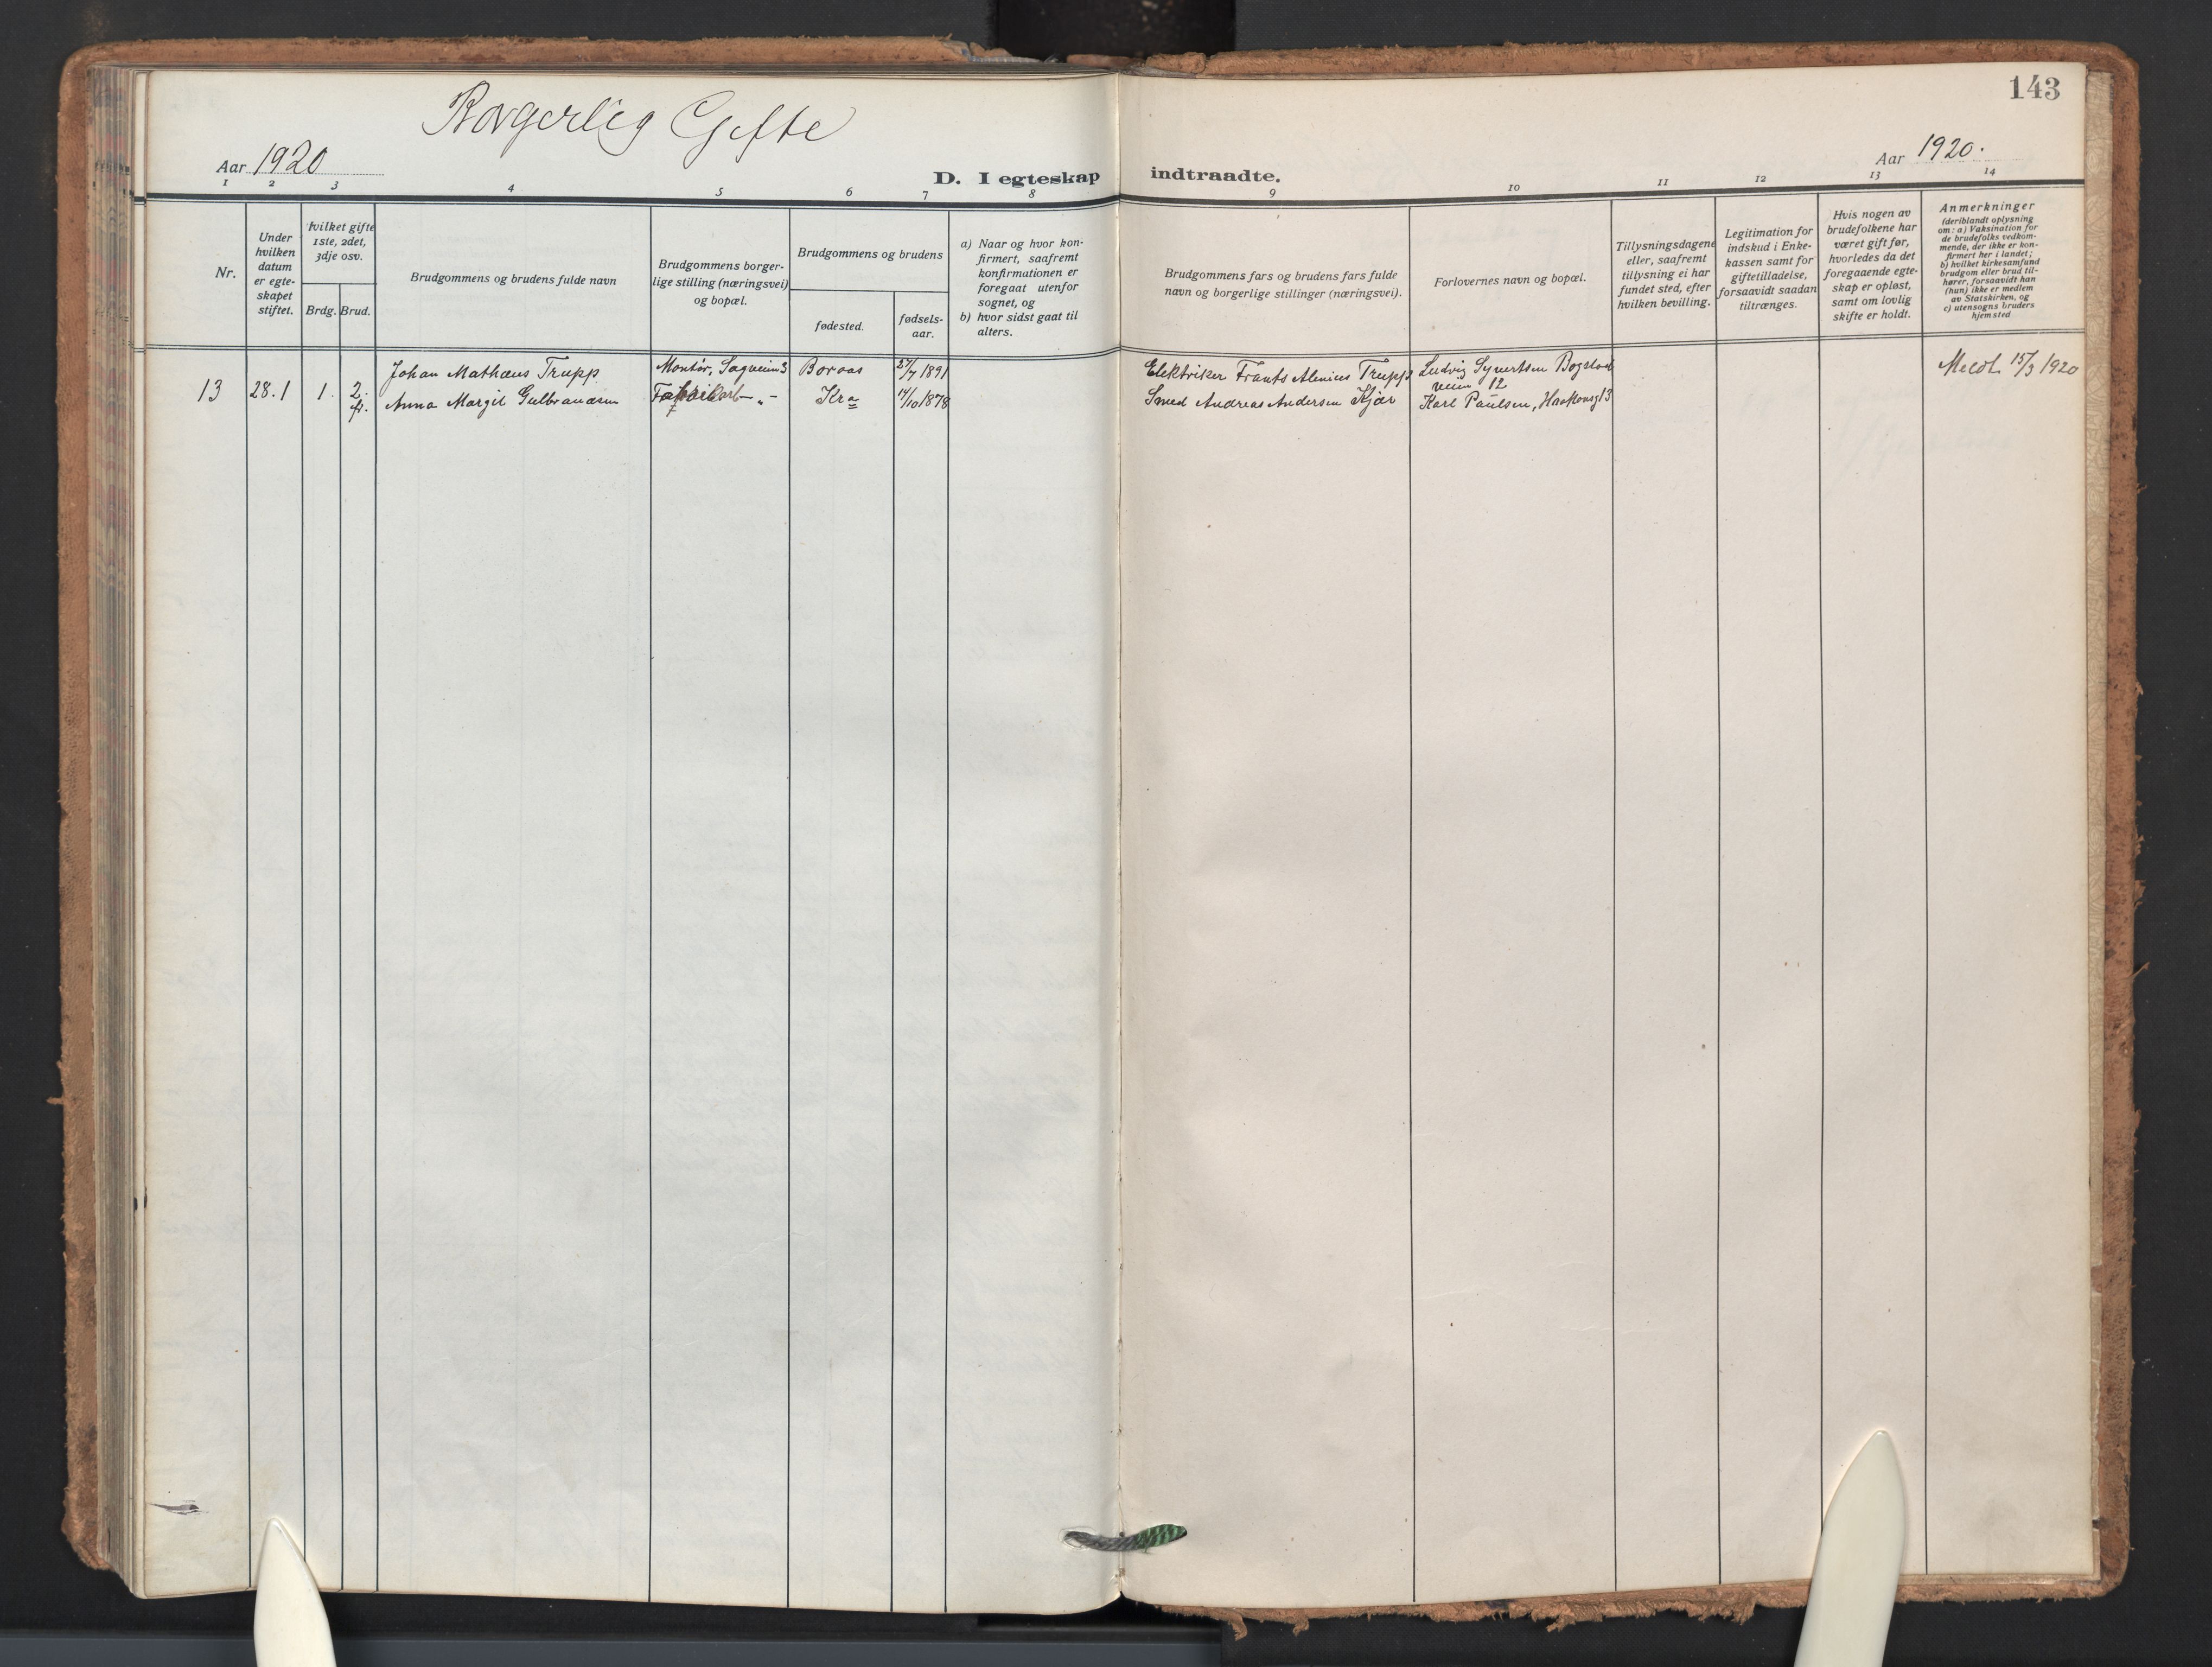 143
Borgerlig Gifte
Aar 1920
Aar 1920.
D. I egteskap indtraadte.
1 2 3 4 5 6 7 8 9 10 11 12 13 14
Nr.
Under
hvilken
datum
er egte-
skapet
stiftet.
hvilket gifte
1ste, 2det,
3dje osv.
Brdg. Brud.
Brudgommens og brudens fulde navn
Brudgommens borger-
lige stilling (næringsvei)
og bopæl.
Brudgommens og brudens
fødested.
fødsels-
aar.
a) Naar og hvor kon-
firmert, saafremt
konfirmationen er
foregaat utenfor
sognet, og
b) hvor sidst gaat til
alters.
Brudgommens fars og brudens fars fulde
navn og borgerlige stillinger (næringsvei).
Forlovernes navn og bopæl.
Tillysningsdagene
eller, saafremt
tillysning ei har
fundet sted, efter
hvilken bevilling.
Legitimation for
indskud i Enke-
kassen samt for
giftetilladelse,
forsaavidt saadan
tiltrænges.
Hvis nogen av
brudefolkene har
været gift før,
hvorledes da det
foregaaende egte-
skap er opløst,
samt om lovlig
skifte er holdt.
Anmerkninger
(deriblandt oplysning
om: a) Vaksination for
de brudefolks vedkom-
mende, der ikke er kon-
firmert her i landet;
b) hvilket kirkesamfund
brudgom eller brud til-
hører, forsaavidt han
(hun) ikke er medlem
av Statskirken, og
c) utensogns bruders
hjemsted
Johan Mathæus Trupp Montør, Sagveien 3 Boraas 27/7 1891 Elektriker Frants Trupp Ludvig Syvertsen Bogstad Meddt. 15/3 1920
veien 12
13 28.1 1. 2. Anna Margit Gulbrandsen - „ - Kra 14/10 1878 Smed Andreas Andersen Kjær Karl Paulsen, Haakonsg 13
fr.